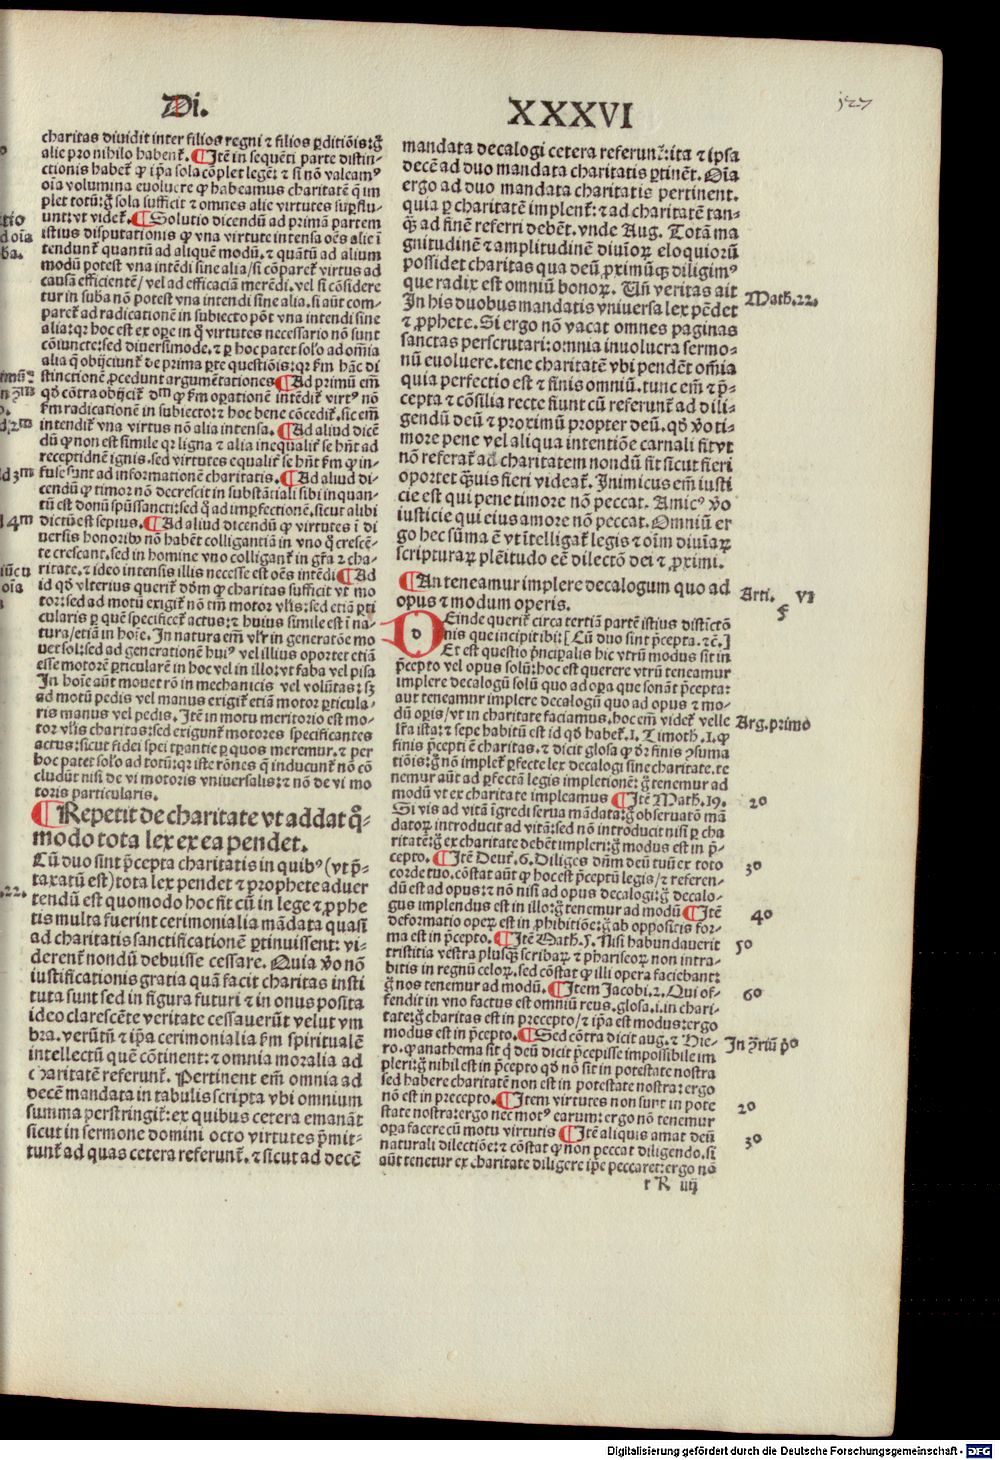 Di.
XXXVI
527
charitas diuidit inter filios regni ⁊ filios ꝑditiõis: g̃
alie pro nihilo habenṫ. ¶ Itẽ in sequẽti parte distin-
ctionis habeṫ ꝙ ip̃a sola cõplet legẽ: ⁊ si nõ valeamꝰ
oĩa volumina euoluere ꝙ habeamus charitatẽ q̃ im
plet totũ: g̃ sola sufficit ⁊ omnes alie virtutes suꝑflu-
unt: vt videṫ. ¶ Solutio dicendũ ad primã partem
istius disputationis ꝙ vna virtute intensa oẽs alie ĩ
tendunṫ quantũ ad aliquẽ modũ. ⁊ quãtũ ad alium
modũ potest vna intẽdi sine alia / si cõpareṫ virtus ad
causã efficientẽ / vel ad efficaciã merẽdi. vel si cõsidere
tur in suba nõ potest vna intendi sine alia. si aũt com-
pareṫ ad radicationẽ in subiecto põt vna intendi sine
alia: qꝛ hoc est ex oꝑe in q̃ virtutes necessario nõ sunt
cõiuncte: sed diuersimode. ⁊ ꝑ hoc patet solꝰo ad om̃ia
alia q̃ obijciunṫ de prima ꝑte questiõis: qꝛ ẜm hãc di
stinctionẽ ꝓcedunt argumẽtationes ¶ Ad primũ em̃
qd̃ cõtra obijciṫ dm̃ ꝙ ẜm oꝑationẽ intẽdiṫ virtꝰ nõ
ẜm radicationẽ in subiecto: ⁊ hoc bene cõcediṫ. sic em̃
intendiṫ vna virtus nõ alia intensa. ¶ Ad aliud dicẽ
dũ ꝙ non est simile qꝛ ligna ⁊ alia inequaliṫ se hñt ad
receptidnẽ ignis. sed virtutes equaliṫ se hñt ẜm ꝙ in-
fuse sunt ad informationẽ charitatis. ¶ Ad aliud di-
cendũ ꝙ timor nõ decrescit in substãtiali sibi inquan-
tũ est donũ spũssancti: sed q̃ ad imꝑfectionẽ. sicut alibi
dictũ est sepius. ¶ Ad aliud dicendũ ꝙ virtutes ĩ di
uersis honoribꝰ nõ habẽt colligantiã in vno q̃ crescẽ-
te crescant. sed in homine vno colliganṫ in gr̃a ⁊ cha-
ritate. ⁊ ideo intensis illis necesse est oẽs intẽdi ¶ Ad
id qd̃ vlterius queriṫ dd̃m ꝙ charitas sufficit vt mo
tor: sed ad motũ exigiṫ nõ tm̃ motor vl̃is: sed etiã ꝑti
cularis ꝑ quẽ specificeṫ actus: ⁊ huius simile est ĩ na-
tura / etiã in hoĩe. In natura em̃ vl̃r in generatõe mo
uet sol: sed ad generationẽ huiꝰ vel illius oportet etiã
esse motorẽ ꝑticularẽ in hoc vel in illo: vt faba vel pisa
In hoĩe aũt mouet rõ in mechanicis vel volũtas: sꝫ
ad motũ pedis vel manus exigiṫ etiã motor ꝑticula-
ris manus vel pedis. Itẽ in motu meritorio est mo-
tor vl̃is charitas: sed exigunṫ motores specificantes
actus: sicut fidei spei tꝑantie ꝑ quos meremur. ⁊ per
hoc patet solꝰo ad totũ: qꝛ iste rõnes q̃ inducunṫ nõ cõ
cludũt nisi de vi motoris vniuersalis: ⁊ nõ de vi mo
toris particularis.
¶ Repetit de charitate vt addat q̃-
modo tota lex ex ea pendet.
Cũ duo sint p̃cepta charitatis in quibꝰ (vt p̃-
taxatũ est) tota lex pendet ⁊ ꝓphete aduer
tendũ est quomodo hoc fit cũ in lege ⁊ ꝓphe
tis multa fuerint cerimonialia mãdata quasi
ad charitatis sanctificationẽ ꝑtinuissent: vi-
derenṫ nondũ debuisse cessare. Quia ꝟo nõ
iustificationis gratia quã facit charitas insti
tuta sunt sed in figura futuri ⁊ in onus posita
ideo clarescẽte veritate cessauerũt velut vm
bra. verũtñ ⁊ ip̃a cerimonialia ẜm spiritualẽ
intellectũ quẽ cõtinent: ⁊ omnia moralia ad
charitatẽ referunṫ. Pertinent em̃ omnia ad
decẽ mandata in tabulis scripta vbi omnium
summa perstringiṫ: ex quibus cetera emanãt
sicut in sermone domini octo virtutes p̃mit-
tunṫ ad quas cetera referunṫ. ⁊ sicut ad decẽ
mandata decalogi cetera referunṫ: ita ⁊ ipsa
decẽ ad duo mandata charitatis ꝑtinẽt. Oĩa
ergo ad duo mandata charitatis pertinent.
quia ꝑ charitatẽ implenṫ: ⁊ ad charitatẽ tan-
q̃ ad finẽ referri debẽt. vnde Aug. Totã ma
gnitudinẽ ⁊ amplitudinẽ diuinoꝝ eloquiorũ
possidet charitas qua deũ ꝓximũqꝫ diligimꝰ
que radix est omniũ bonoꝝ. Vñ veritas ait
In his duobus mandatis vniuersa lex pẽdet
⁊ ꝓphete. Si ergo nõ vacat omnes paginas
sanctas perscrutari: omnia inuolucra sermo-
nũ euoluere. tene charitatẽ vbi pendẽt om̃ia
quia perfectio est ⁊ finis omniũ. tunc em̃ ⁊ p̃-
cepta ⁊ cõsilia recte fiunt cũ referunṫ ad dili-
gendũ deũ ⁊ proximũ propter deũ. qd̃ ꝟo ti-
more pene vel aliqua intentiõe carnali fit vt
nõ referaṫ ad charitatem nondũ fit sicut fieri
oportet q̃uis fieri videaṫ. Inimicus em̃ iusti
cie est qui pene timore nõ peccat. Amicꝰ ꝟo
iusticie qui eius amore nõ peccat. Omniũ er
go hec sũma ẽ vt ĩtelligaṫ legis ⁊ oĩm diuĩaꝝ
scripturaꝝ plẽitudo eẽ dilectõ dei ⁊ ꝓximi.
¶ An teneamur implere decalogum quo ad
opus ⁊ modum operis.
DEinde queriṫ circa tertiã partẽ istius distĩctõ
nis que incipit ibi: [Cũ duo sint p̃cepta. ⁊c̃.]
Et est questio p̃ncipalis hic vtrũ modus sit in
p̃cepto vel opus solũ: hoc est querere vtrũ teneamur
implere decalogũ solũ quo ad oꝑa que sonãt p̃cepta:
aut teneamur implere decalogũ quo ad opus ⁊ mo-
dũ oꝑis / vt in charitate faciamus. hoc em̃ videṫ velle
lr̃a ista: ⁊ sepe habitũ est id qd̃ habeṫ. 1. Timoth. 1. ꝙ
finis p̃cepti ẽ charitas. ⁊ dicit glosa ꝙ dr̃ finis ꝯsuma
tiõis: g̃ nõ impleṫ ꝑfecte lex decalogi sine charitate. te
nemur aũt ad ꝑfectã legis impletionẽ: g̃ tenemur ad
modũ vt ex charitate impleamus ¶ Itẽ Math. 19.
Si vis ad vitã ĩgredi serua mãdata: g̃ obseruatõ mã
datoꝝ introducit ad vitã: sed nõ introducit nisi ꝑ cha
ritatẽ: g̃ ex charitate debẽt impleri: g̃ modus est in p̃-
cepto. ¶ Itẽ Deuṫ. 6. Diliges dñm deũ tuũ ex toto
corde tuo. cõstat aũt ꝙ hoc est p̃ceptũ legis / ⁊ referen-
dũ est ad opus: ⁊ nõ nisi ad opus decalogi: g̃ decalo-
gus implendus est in illo: g̃ tenemur ad modũ ¶ Itẽ
deformatio opeꝝ est in ꝓhibitiõe: g̃ ab oppositis for-
ma est in p̃cepto. ¶ Itẽ Math. 5. Nisi habundauerit
tristitia vestra plusqꝫ scribaꝝ ⁊ phariseoꝝ non intra-
bitis in regnũ celoꝝ. sed cõstat ꝙ illi opera faciebant:
g̃ nos tenemur ad modũ. ¶ Item Jacobi. 2. Qui of-
fendit in vno factus est omniũ reus. glosa. i. in chari-
tate: g̃ charitas est in precepto / ⁊ ip̃a est modus: ergo
modus est in p̃cepto. ¶ Sed cõtra dicit aug. ⁊ Hie-
ro. ꝙ anathema sit q̃ deũ dicit p̃cepisse impossibile im
pleri: g̃ nihil est in p̃cepto qd̃ nõ sit in potestate nostra
sed habere charitatẽ non est in potestate nostra: ergo
nõ est in precepto. ¶ Item virtutes non sunt in pote
state nostra: ergo nec motꝰ earum: ergo nõ tenemur
opa facere cũ motu virtutis ¶ Itẽ aliquis amat deũ
naturali dilectiõe: ⁊ cõstat ꝙ non peccat diligendo. si
aũt tenetur ex charitate diligere ip̃e peccaret: ergo nõ
r R iiij
Math. 22.
Arti. VI
Arg. primo
20
30
40
50
60
In ꝯ̃riũ p̃o
20
30
.22.
Digitalisierung gefördert durch die Deutsche Forschungsgemeinschaft - DFG